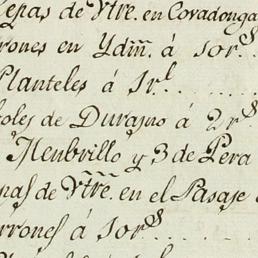 Cepas de Ytre. en Covadonga
rrones en Ydm̃. á 10r.s
Planteles á 1r.l
oles de Durasno á 2r.s
Menbrillo y 3 de Pera
nas de Ytre. en el Pasaje
rrones á 10r.s